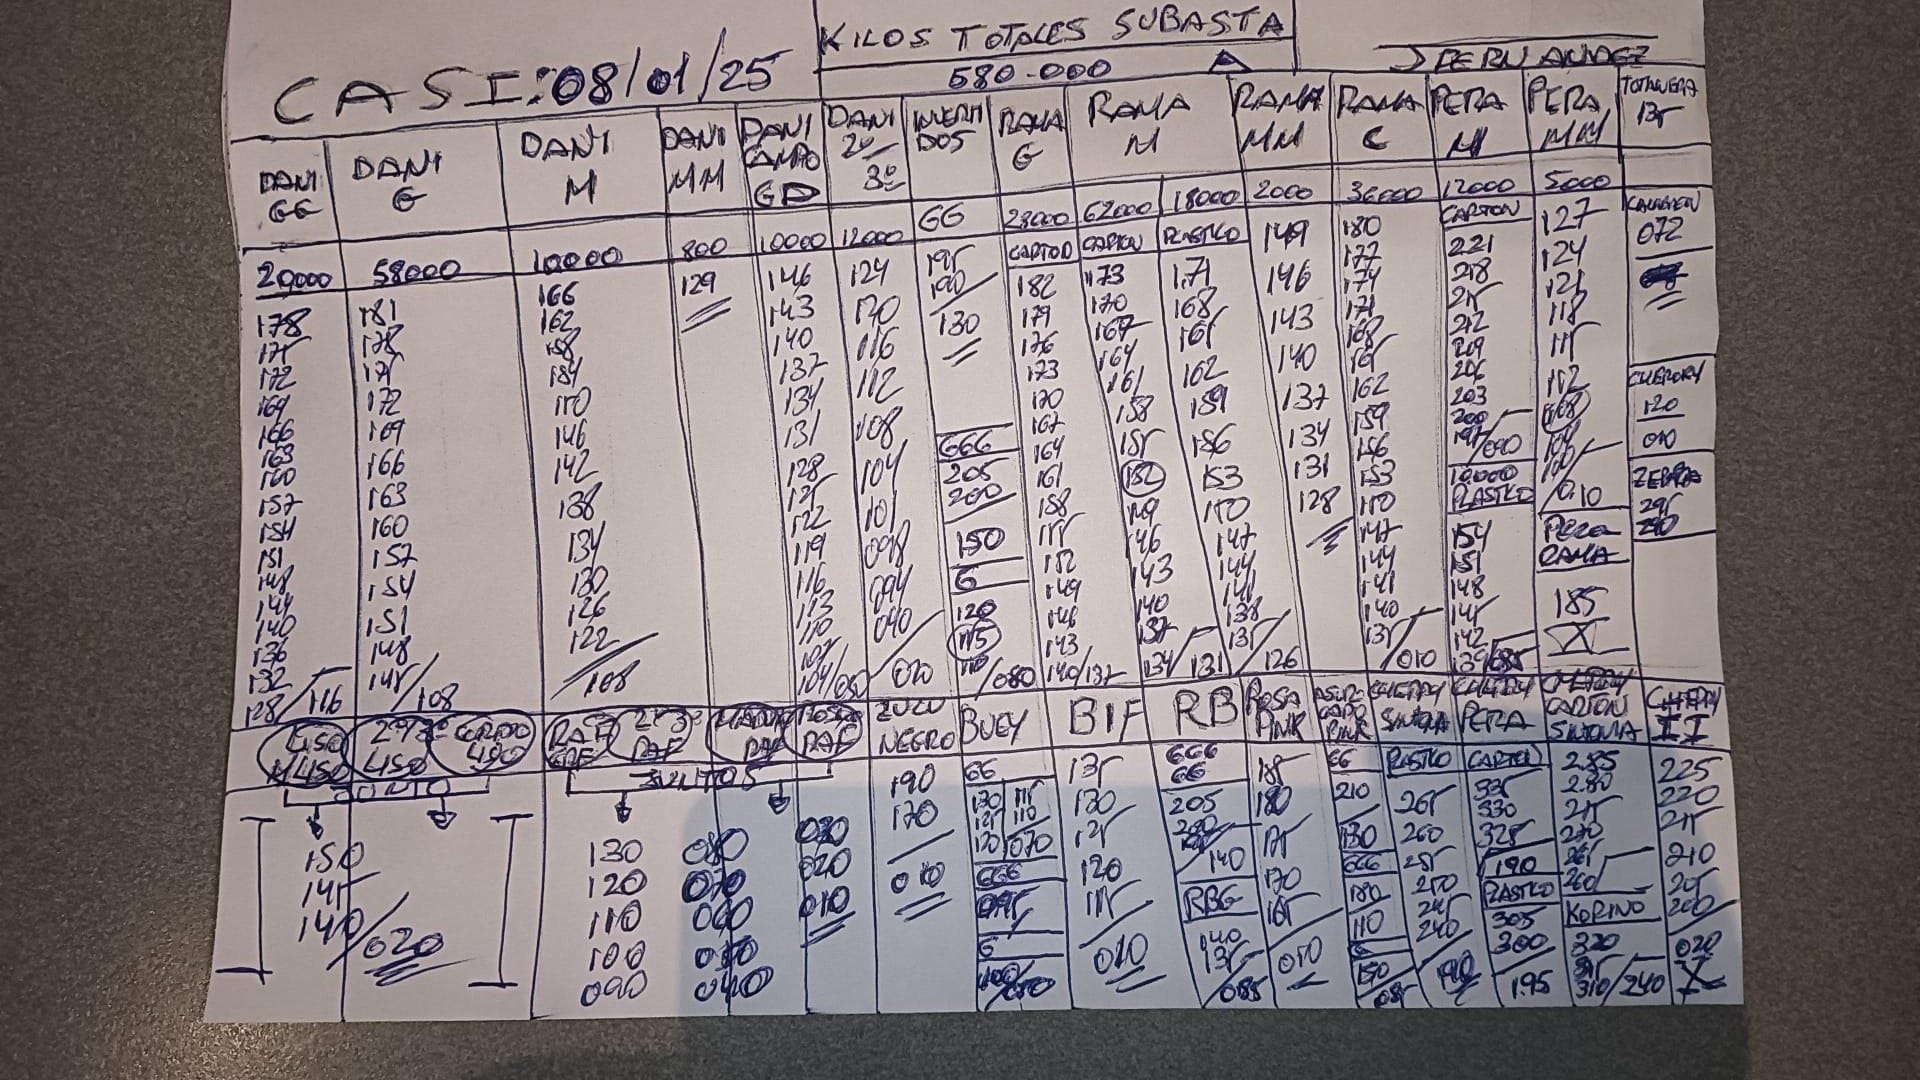 KILOS TOTALES SUBASTA
580-000
CASI: 08/01/25
DANI GG
20000
178
175
172
169
166
163
160
157
154
151
148
144
140
136
132
128/116
DANI G
58000
181
178
175
172
169
166
163
160
157
154
151
148
145/108
DANI M
10000
166
162
158
154
150
146
142
138
134
130
126
122
/108
DANI MM
800
129
DANI CAMPO GD
10000
146
143
140
137
134
131
128
125
122
119
116
113
110
107
104/080
DANI 2º 3º
12000
124
120
116
112
108
104
101
098
094
090
/020
INVERTIDOS
GG
195
190
130
GGG
205
200
150
G
120
115
110/080
RAMA G
23000
CARTON
182
179
176
173
170
167
164
161
158
155
152
149
146
143
140/137
RAMA M
62000
CARTON
173
170
167
164
161
158
155
152
149
146
143
140
137
134/131
18000
PLASTICO
171
168
165
162
159
156
153
150
147
144
141
138
135/126
RAMA MM
2000
149
146
143
140
137
134
131
128
RAMA C
36000
180
177
174
171
168
165
162
159
156
153
150
147
144
141
140
135/010
PERA M
12000
CARTON
221
218
215
212
209
206
203
200
197/090
10000
PLASTICO
154
151
148
145
142
139/085
PERA MM
5000
127
124
121
118
115
112
108
104
100/010
PERA RAMA
185
X
072
CHERRY
120
010
ZEBRA
295
290
LISO M
2º 3º
CORTADO
SUELTO
150
145
140/020
RAF
2º 3º RAF
RAF
RAF
SUELTOS
130
120
110
100
090
080
070
060
050
040
030
020
010
ZULU NEGRO
190
170
010
BUEY
GG
130
125
120
115
110
070
GGG
095
G
100/050
BIF
135
130
125
120
115
010
RB
GGG
GG
205
200
140
RBG
140
135
/085
ROSA PINK
185
180
175
170
165
010
PINK
GG
210
130
GGG
180
110
G
150
085
CHERRY SINTONIA
PLASTICO
265
260
255
250
245
240
190
CHERRY PERA
CARTON
335
330
325
190
PLASTICO
305
300
195
CHERRY CARTON SINTONIA
2.85
2.80
275
270
265
260
KORINO
320
315
310/240
CHERRY II
225
220
215
210
205
200
020
X